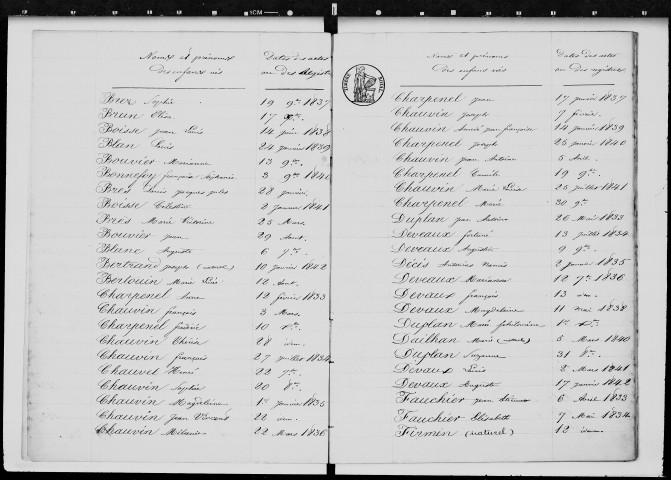 Noms et prénoms des enfans nés
Dates des actes ou des Registres
Brez Sophie 19 9bre 1837
Brun Elisa 17 Xbre
Boisse jean Louis 14 juin 1838
Blan Louis 24 janvier 1839
Bouvier Marianne 13 9bre
Bonnefoy françois 3 9bre 1840
Brès Louis jacques jules 28 janvier
Boisse Célestin 2 janvier 1841
Brès Marie Victorine 25 Mars
Bouvier jean 29 Aout
Blanc Auguste 6 7bre
Bertrand joseph (naturel) 10 janvier 1842
Bertouin Marie 12 Aout
Charpenel 12 février 1833
Chauvin françois 3 Mars
Charpenel 10 Xbre
Chauvin Thérèse 28 idem
Chauvin françois 27 juillet 1834
Chauvet Henri 22 7bre
Chauvin Sophie 20 8bre
Chauvin Magdeleine 1er janvier 1835
Chauvin jean Vincent 22 idem
Chauvin Mélanie 22 Mars 1836
TIMBRE ROYAL
Noms et prénoms des enfans nés
Dates des actes ou des registres
Charpenel jean 17 janvier 1837
Chauvin joseph 7 février
Chauvin françoise 14 janvier 1839
Charpenel joseph 25 janvier 1840
Chauvin jean Antoine 5 Avril
Charpenel Camille 19 9bre
Chauvin Marie 25 juillet 1841
Charpenel Marie 30 9bre
Duplan jean Antoine 26 Mai 1833
Deveaux fortuné 13 juillet 1834
Deveaux Augustin 9 9bre
Décès 2 janvier 1835
Deveaux Marianne 12 7bre 1836
Devaux françois 13 idem
Devaux Magdeleine 11 mai 1838
Duplan Marie 1er Xbre
Dailhan Marie 5 Mars 1840
Duplan Suzanne 31 8bre
Devaux Louis 2 Mars 1841
Devaux Auguste 17 janvier 1842
Fauchier jean Etienne 6 Avril 1833
Fauchier Elisabeth 7 Mai 1834
Firmin (naturel) 12 idem